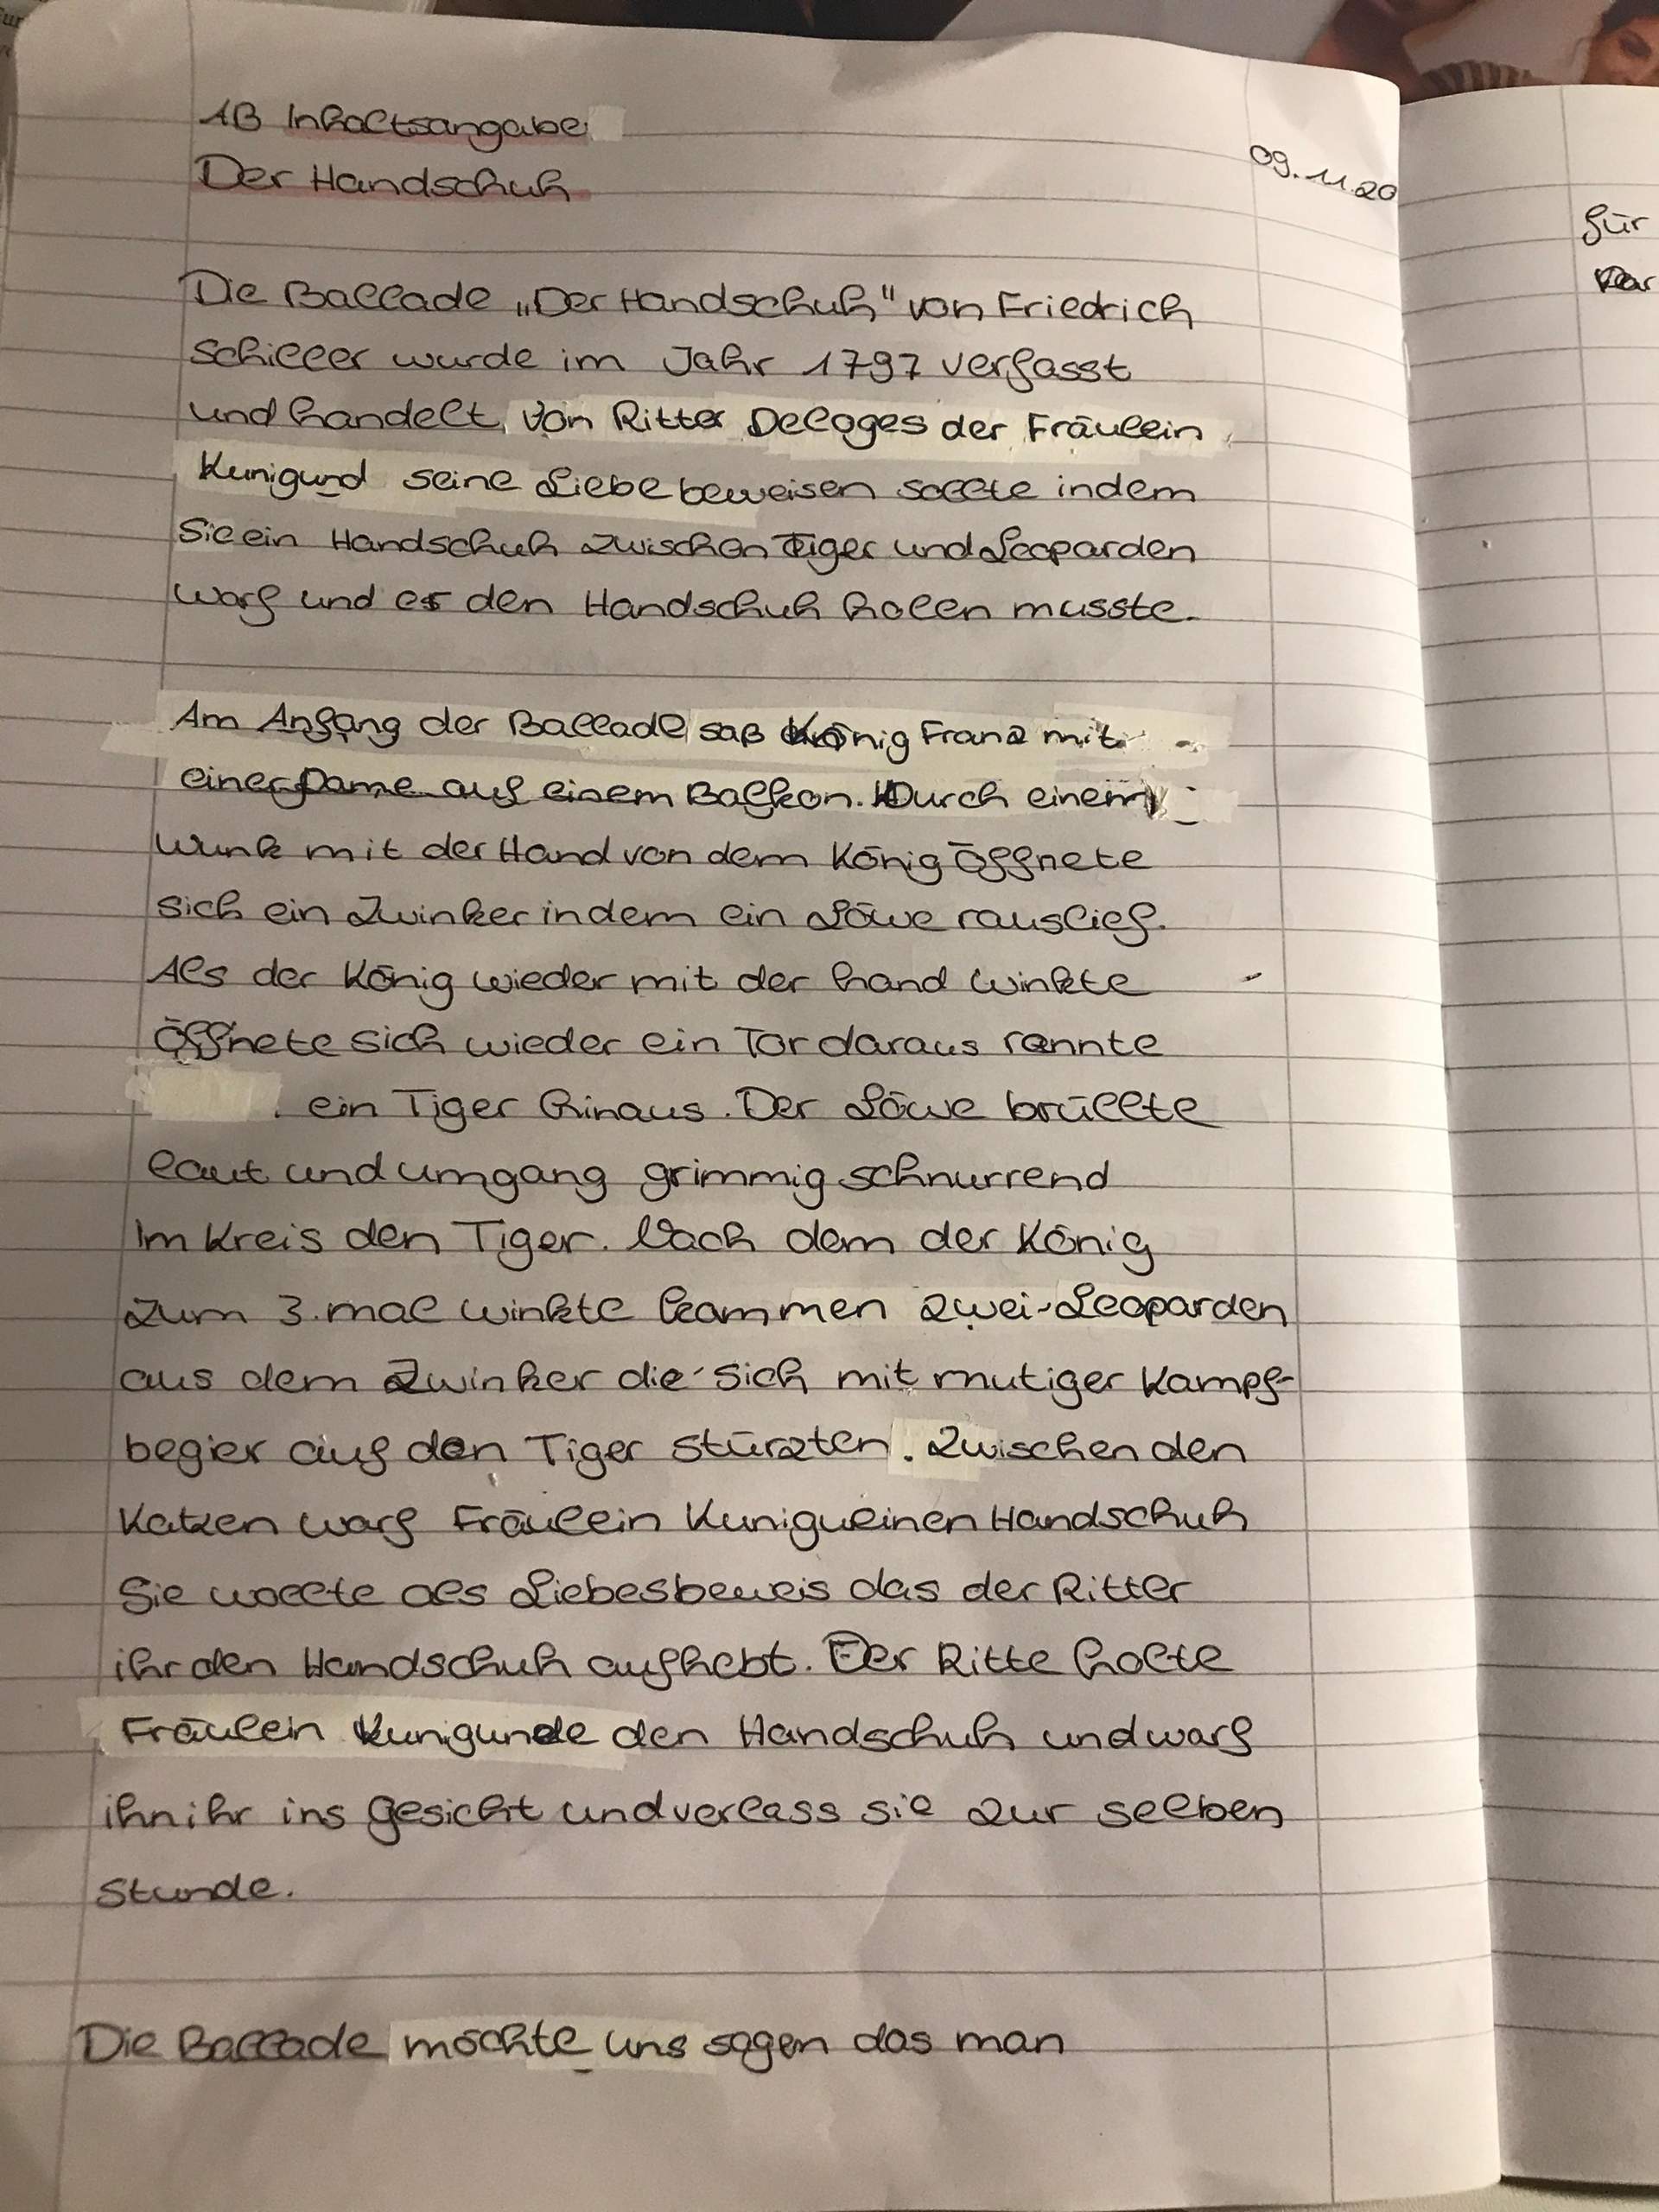 AB Inhaltsangabe
Der Handschuh
09.11.20
Die Ballade „Der Handschuh" von Friedrich
Schiller wurde im Jahr 1797 verfasst
und handelt von Ritter Deloges der Fräulein
Kunigund seine Liebe beweisen sollte indem
Sie ein Handschuh zwischen Tiger und Leoparden
warf und er den Handschuh holen musste.
Am Anfang der Ballade saß König Franz mit
einer Dame auf einem Balkon. Durch einem
Wunk mit der Hand von dem König Öffnete
sich ein Zwinker indem ein Löwe rauslief.
Als der König wieder mit der hand winkte
Öffnete sich wieder ein Tor daraus rannte
ein Tiger hinaus. Der Löwe brüllte
laut und umgang grimmig schnurrend
Im Kreis den Tiger. Nach dem der König
zum 3. mal winkte kammen zwei Leoparden
aus dem Zwinker die sich mit mutiger Kampf-
begier auf den Tiger stürzten. Zwischen den
Katzen warf Fräulein Kunigu einen Handschuh
Sie wollte als Liebesbeweis das der Ritter
ihr den Handschuh aufhebt. Der Ritte holte
Fräulein Kunigunde den Handschuh und warf
ihn ihr ins Gesicht und verlass sie zur selben
Stunde.
Die Ballade möchte uns sagen das man
für